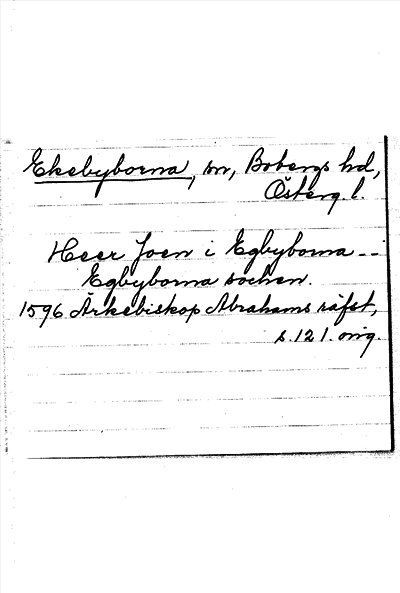 Ekebyborna, sn, Bobergs hd,
Österg. l.
Heer Joen i Egbyborna --
Egbyborna sochen.
1596. Ärkebiskop Abrahams räfst,
s. 121. orig.